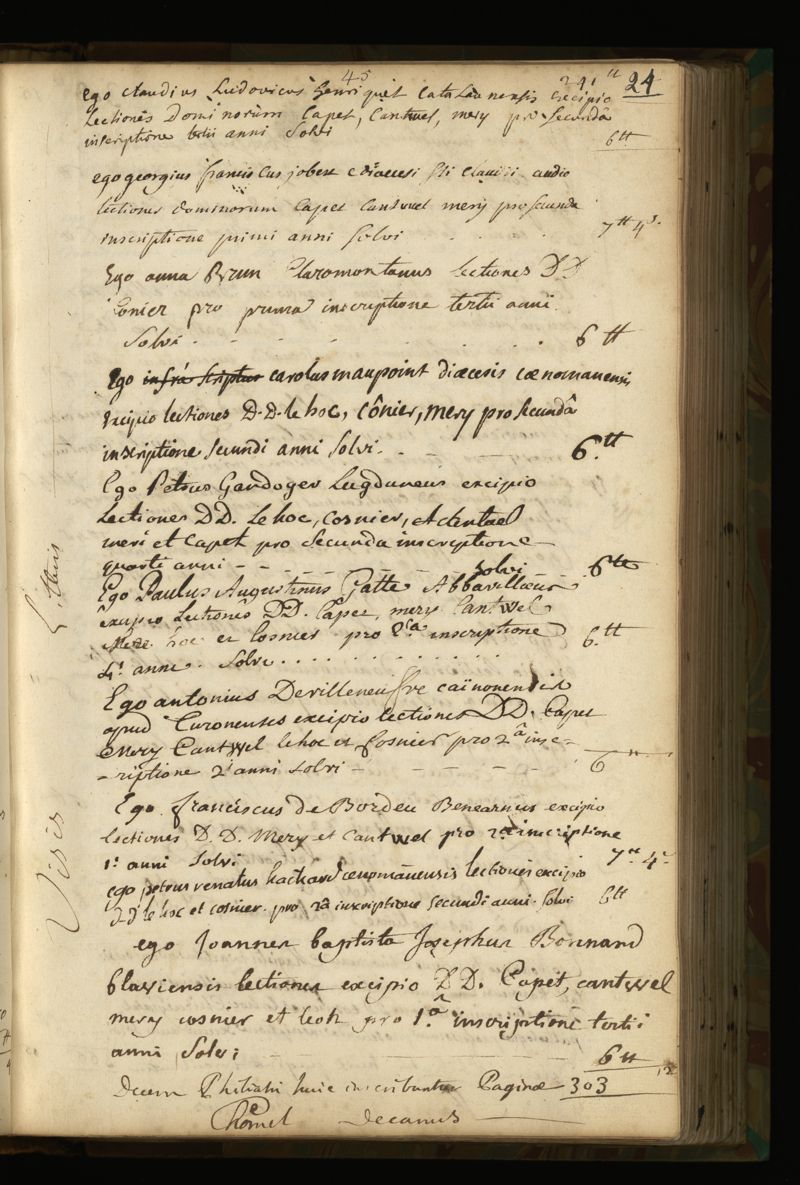 45
241 tt 24
ego claudius Ludovicus henriquet catalaunensis excipio
Lectiones Dominorum Capet, Cantwel, mery pro secundâ
inscriptione anni Solvi
6 tt
ego georgius franciscus jobert e diœcesi sti claudii audio
lectiones dominorum Capet Cantwel mery pro secunda
inscriptione primi anni solvi . . . 7 tt 4 s.
Ego anna Brun Claromontanus lectiones DD
Cosnier pro prima inscriptione tertii anni
Solvi . . . . . . 6 tt
Ego infrà scriptus carolus maupoint diœcesis cœnomanensis
excipio lectiones D.D. le hoc, cônier, mery pro secundâ
inscriptione secundi anni solvi. - - - 6. tt
Ego Petrus Gardoger Lugduneus excipio
Lectiones DD. Le hoc, Cosnier,
meri et Capet pro secunda inscriptione
quarti anni - - - - - - - solvi - - 6 tt
Ego Paulus Augustinus Gatte Abbavillœus
excipio Lectiones DD. Capet, mery Cantwel
hoc et Cosnier pro 2.da inscriptione
6. tt
4i anni. Solvi . . . . . . . .
Ego antonius Devilleneufve caïnonensis
apud Turonenses excipio lectiones DD. Capet
Mery Cantwel lehoc et Cosnier pro 2â insc-
-riptione 2i anni solvi - - - - - 6 tt
Ego franciscus de Bordeu Benearnus excipio
lectiones D.D. Mery et Cantwel pro 2a inscriptione
1i anni Solvi 7 tt 4 s
ego petrus renatus hachard cœnomanensis lectiones excipio
d.d. le hoc et cosnier pro 2da inscriptione secundi anni. Solvi 6 tt
ego Joannes baptista Josephus Bonnard
blaviensis lectiones excipio DD. Capet, cantwel
mery cosnier et leoh pro 1.â inscriptione tertii
anni Solvi 6 tt
Decem Philiatri huic inscribuntur Paginæ 303
Thomel Decanus
Visis
Litteris